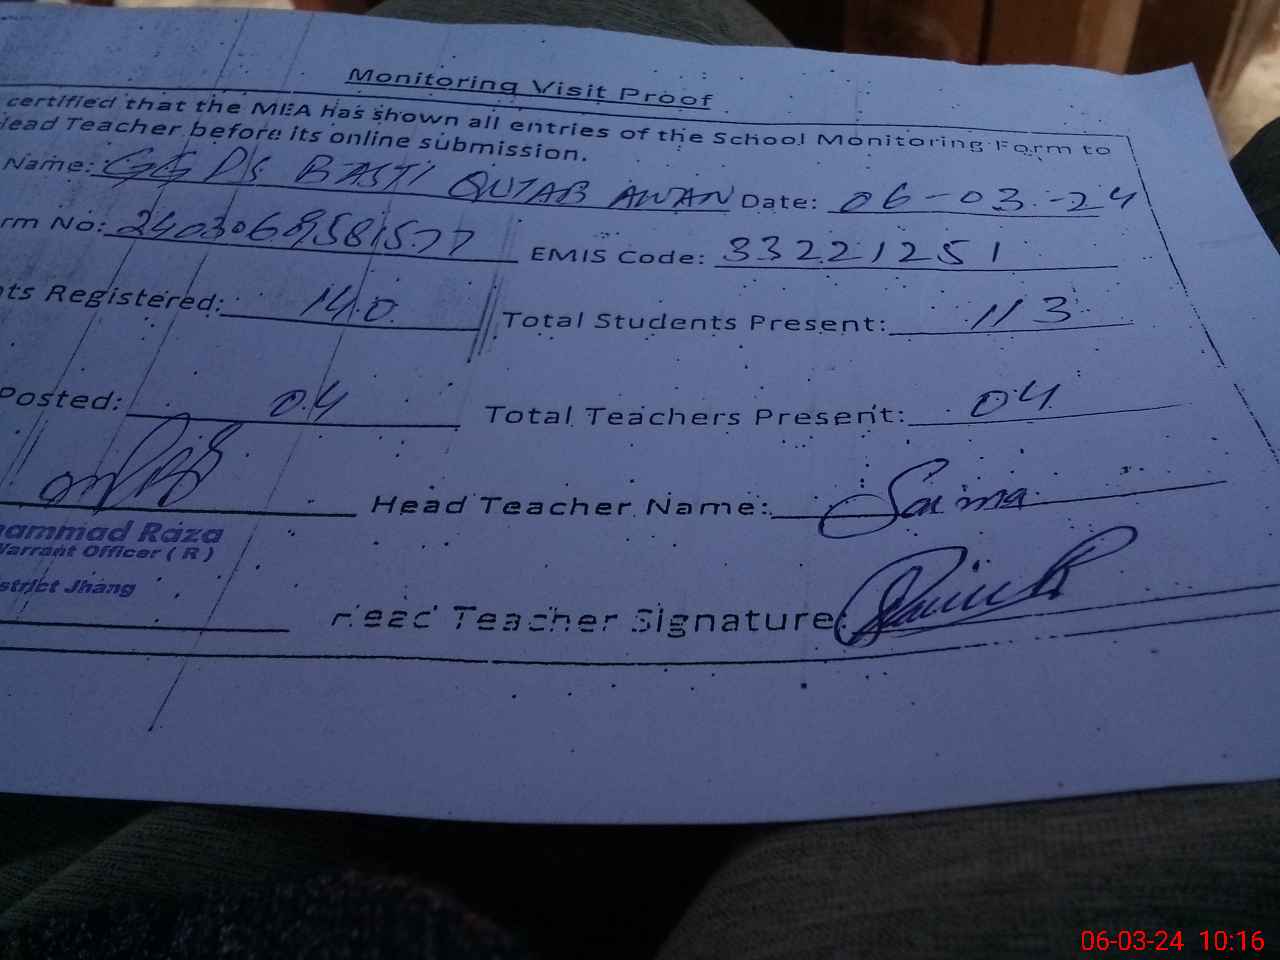 Monitoring Visit Proof
certified that the MEA has shown all entries of the School Monitoring Form to
Head Teacher before its online submission.
Name: GGPS BASTI QUTAB AWAN Date: 06-03-24
rm No: EMIS Code: 33221251
ts Registered: 140 Total Students Present: 113
Posted: 04 Total Teachers Present: 04
Head Teacher Name: Saima
ammad Raza
Warrant Officer ( R )
strict Jhang
Head Teacher Signature
06-03-24 10:16